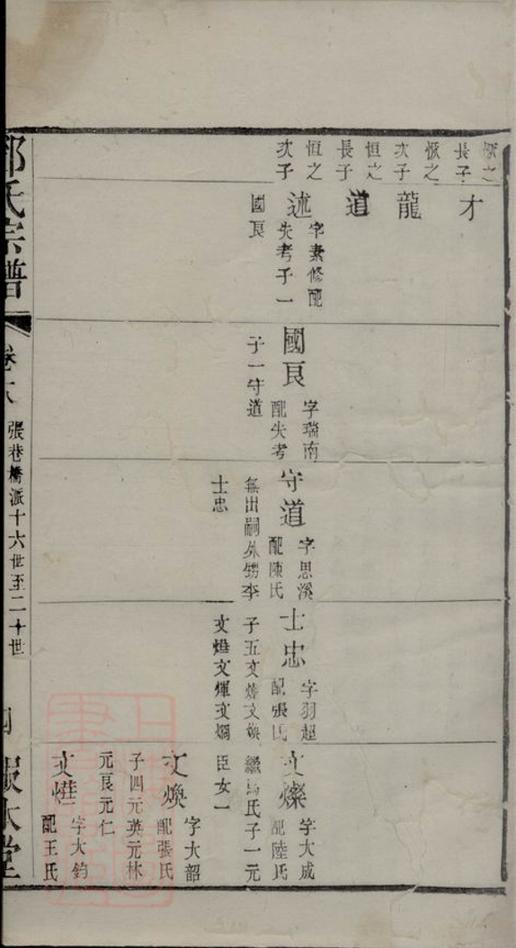 恒之
長子
才
次子
龍
恒之
長子
道
恒之
次子
述
字素修配
失考子一
國良
國良
字瑞南
配失考
子一守道
守道
字思溪
配陳氏
無出嗣外甥李
士忠
士忠
字羽超
配張氏
子五文燦文煥
文燁文煇文炯
文燦
字大成
配陸氏
繼馬氏子一元
臣女一
文煥
字大韶
配張氏
子四元英元林
元良元仁
文燁
字大鈞
配王氏
氏宗譜
卷
張巷橋派十六世至二十世
四
本堂